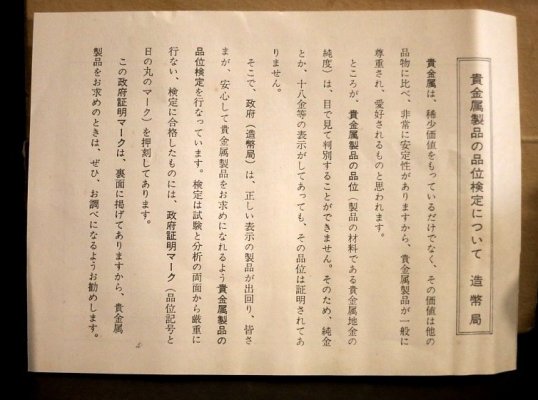 貴金属製品の品位検定について 造幣局
貴金属は、稀少価値をもっているだけでなく、その価値は他の
品物に比べ、非常に安定性がありますから、貴金属製品が一般に
尊重され、愛好されるものと思われます。
ところが、貴金属製品の品位(製品の材料である貴金属地金の
純度)は、目で見て判別することができません。そのため、純金
とか、十八金等の表示がしてあっても、その品位は証明されてあ
りません。
そこで、政府(造幣局)は、正しい表示の製品が出回り、皆さ
まが、安心して貴金属製品をお求めになれるよう貴金属製品の
品位検定を行なっています。検定は試験と分析の両面から厳重に
行ない、検定に合格したものには、政府証明マーク(品位記号と
日の丸のマーク)を押刻してあります。
この政府証明マークは、裏面に掲げてありますから、貴金属
製品をお求めのときは、ぜひ、お調べになるようお勧めします。